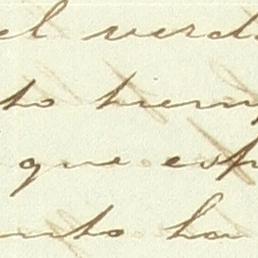 el verd
to tiem
que esp
ento ha